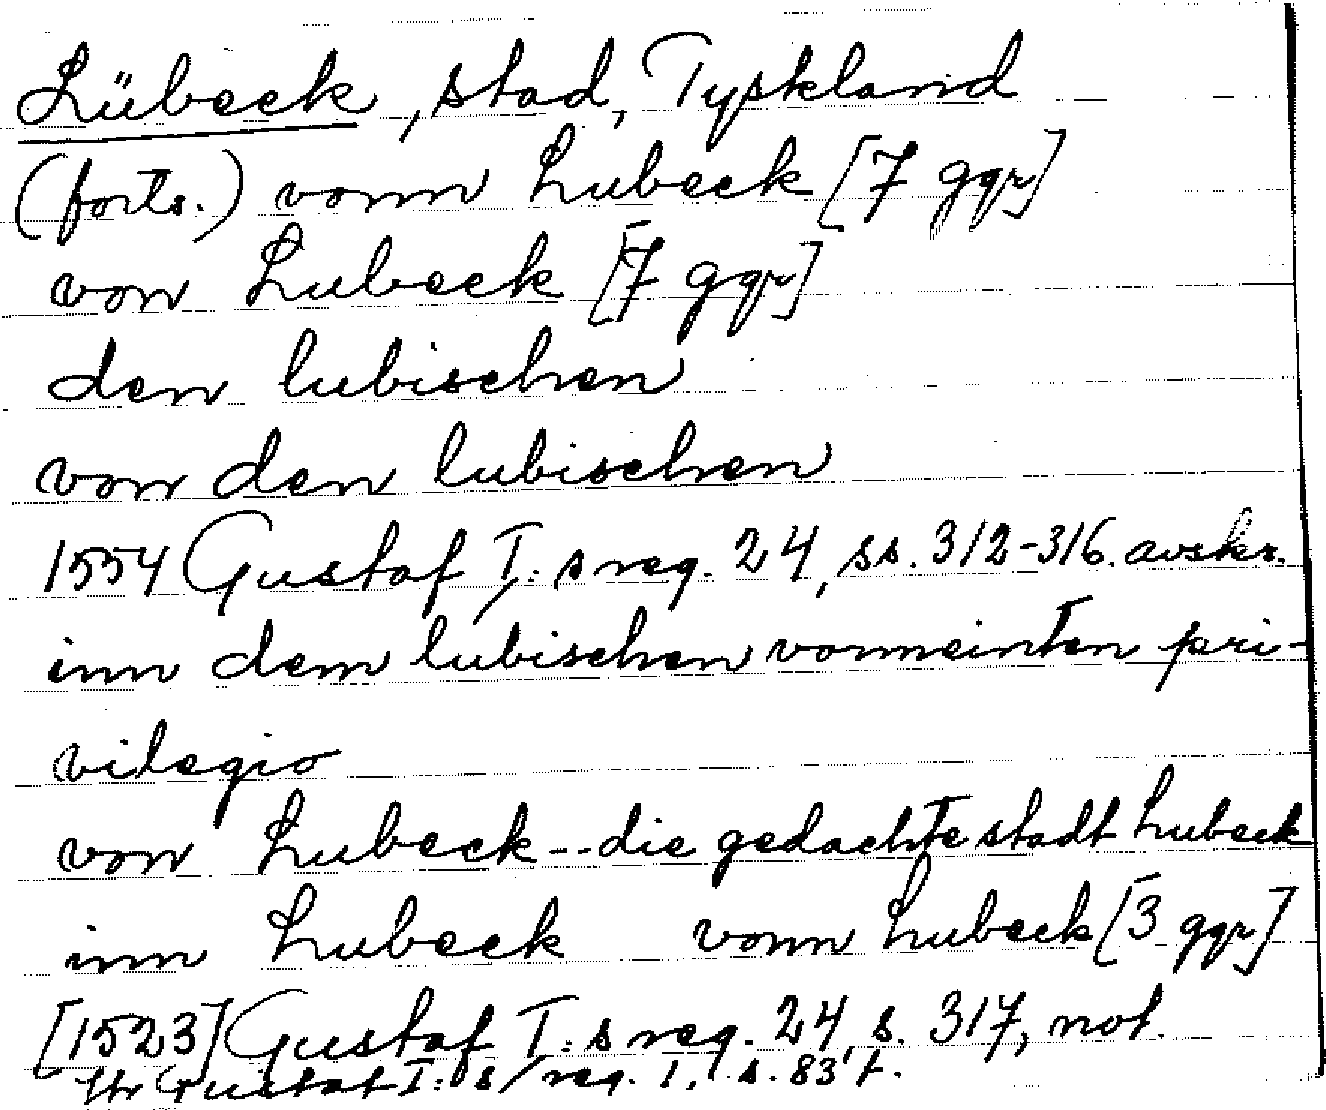 Lübeck, stad, Tyskland
(forts.) vonn Lubeck [7 ggr]
von Lubeck [7 ggr]
den lubischen
von den lubischen
1554 Gustaf I:s reg. 24, ss. 312-316. avskr.
inn dem lubischen vormeinten pri-
vilegio
von Lubeck -- die gedachte stadt Lubeck
inn Lubeck vonn Lubeck [3 ggr]
[1523] Gustaf I:s reg. 24, s. 317, not.
Gustaf I:s reg. 1, s. 83 f.